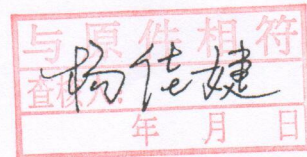 与原件相符
查核人:
杨佳婕
年 月 日